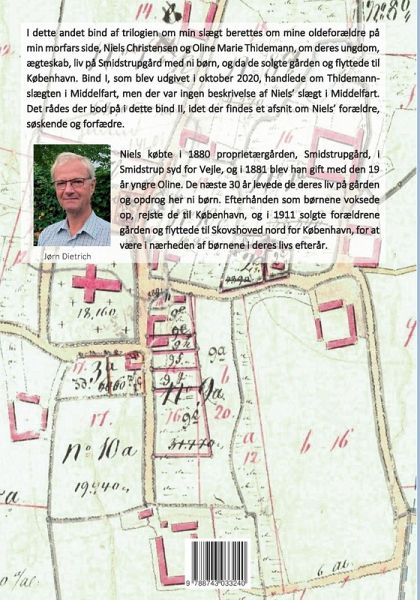 I dette andet bind af trilogien om min slægt berettes om mine oldeforældre på
min morfars side, Niels Christensen og Oline Marie Thidemann, om deres ungdom,
ægteskab, liv på Smidstrupgård med ni børn, og da de solgte gården og flyttede til
København. Bind I, som blev udgivet i oktober 2020, handlede om Thidemann-
slægten i Middelfart, men der var ingen beskrivelse af Niels' slægt i Middelfart.
Det rådes der bod på i dette bind II, idet der findes et afsnit om Niels' forældre,
søskende og forfædre.
Niels købte i 1880 proprietærgården, Smidstrupgård, i
Smidstrup syd for Vejle, og i 1881 blev han gift med den 19
år yngre Oline. De næste 30 år levede de deres liv på gården
og opdrog her ni børn. Efterhånden som børnene voksede
op, rejste de til København, og i 1911 solgte forældrene
gården og flyttede til Skovshoved nord for København, for at
være i nærheden af børnene i deres livs efterår.
Jørn Dietrich
18,160
9a
17.
3a
17.
No 9a
16
b
20.
No 10a
19940
a
12
b 16
9 788743 033240